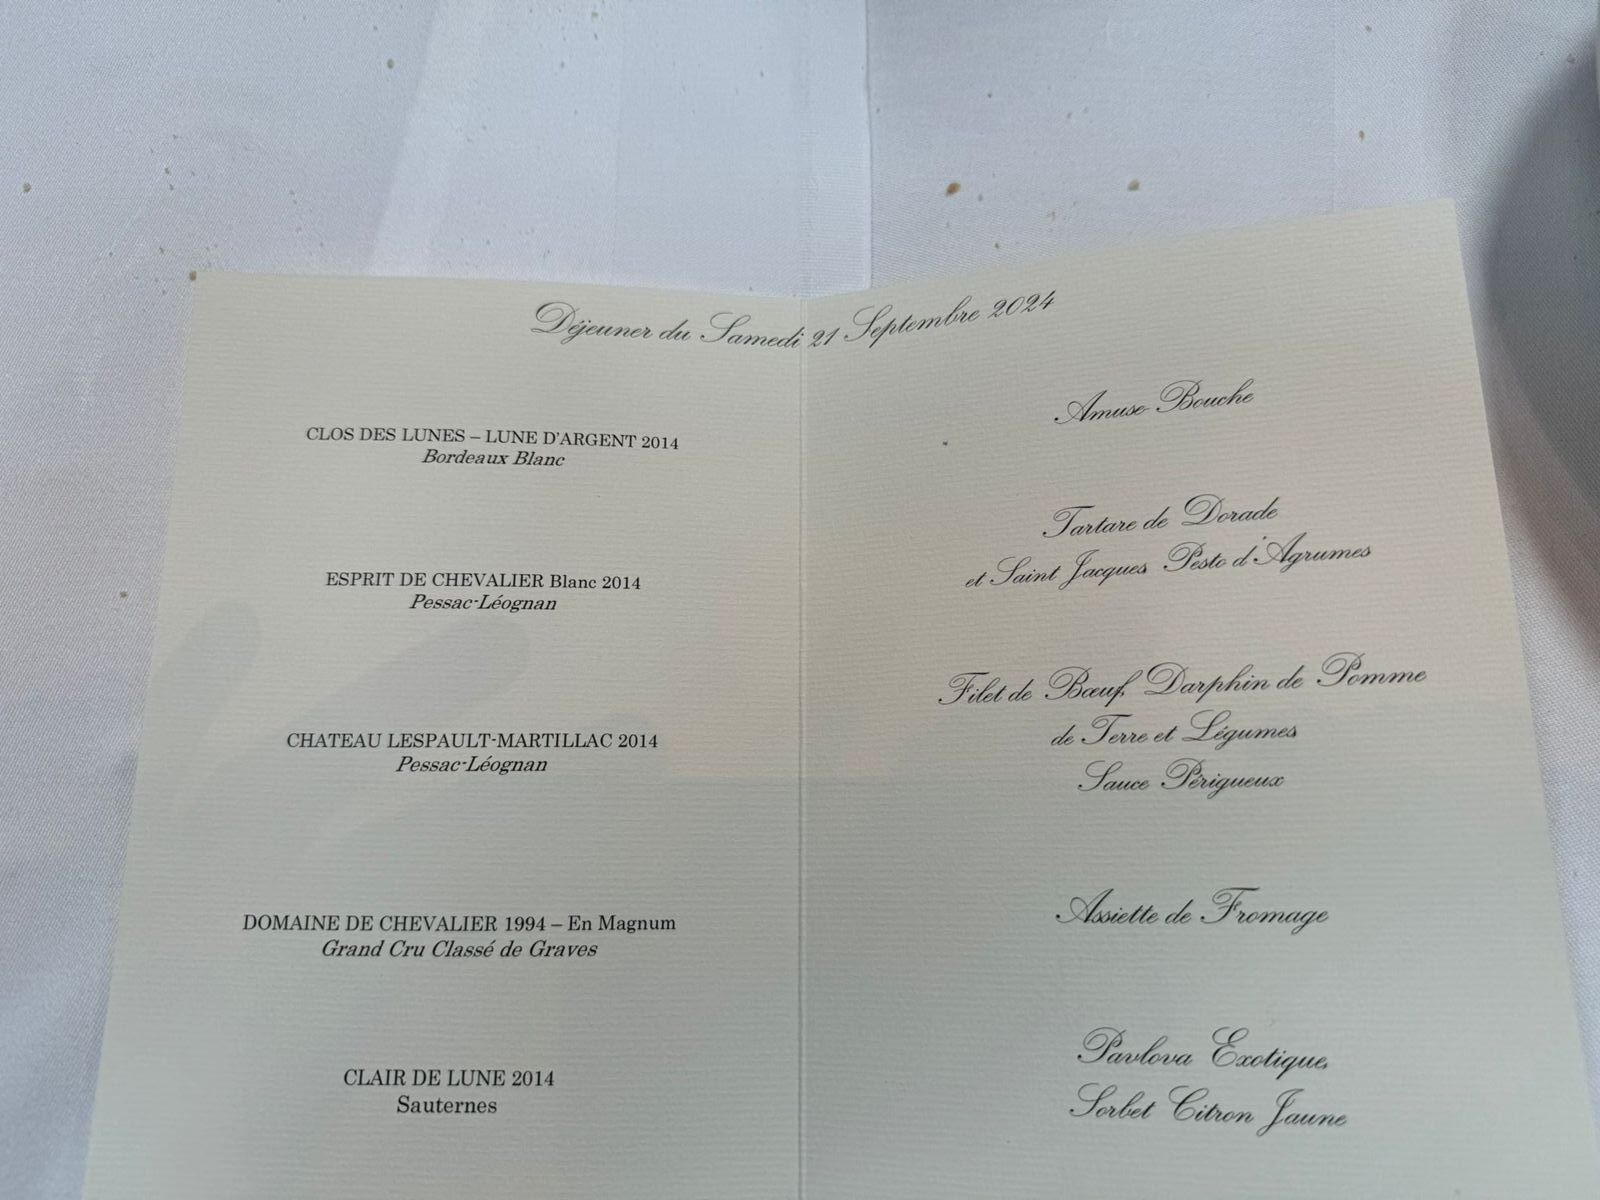 Déjeuner du Samedi 21 Septembre 2024
CLOS DES LUNES – LUNE D'ARGENT 2014
Bordeaux Blanc
ESPRIT DE CHEVALIER Blanc 2014
Pessac-Léognan
CHATEAU LESPAULT-MARTILLAC 2014
Pessac-Léognan
DOMAINE DE CHEVALIER 1994 – En Magnum
Grand Cru Classé de Graves
CLAIR DE LUNE 2014
Sauternes
Amuse-Bouche
Tartare de Dorade
et Saint Jacques, Pesto d'Agrumes
Filet de Bœuf, Darphin de Pomme
de Terre et Légumes
Sauce Périgueux
Assiette de Fromage
Pavlova Exotique,
Sorbet Citron Jaune